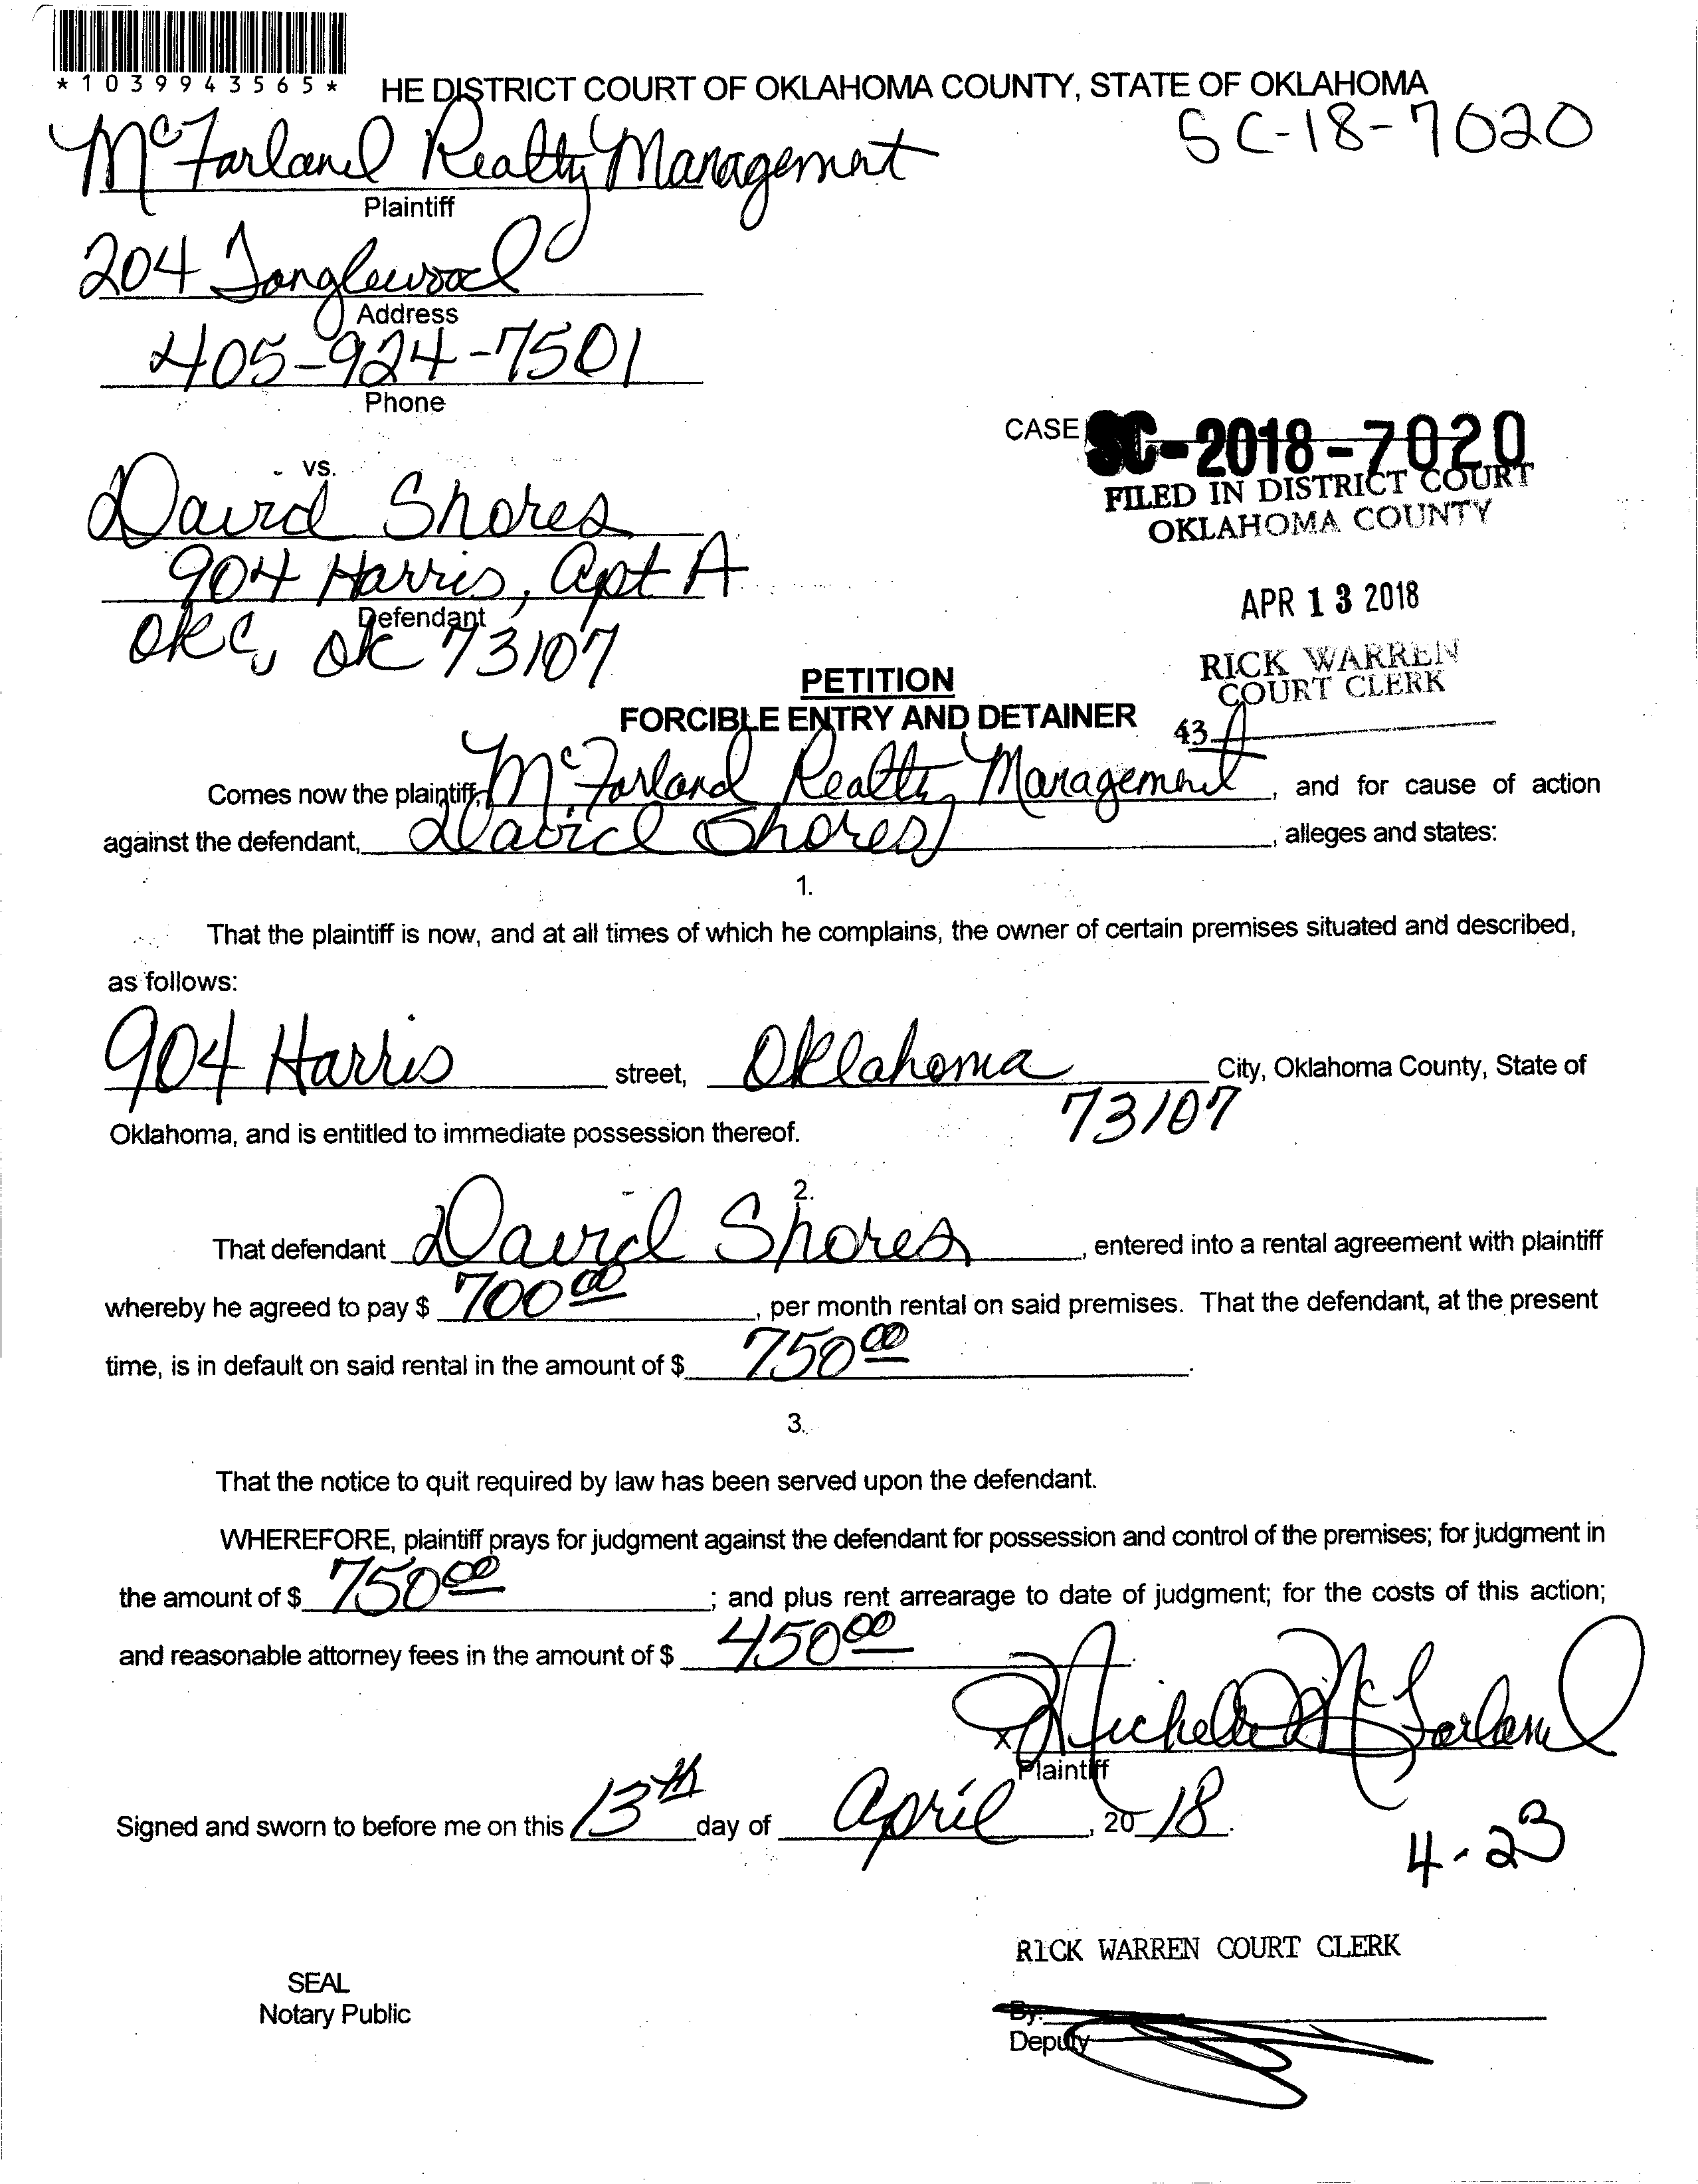 *1039943565*
HE DISTRICT COURT OF OKLAHOMA COUNTY, STATE OF OKLAHOMA
SC-18-7020
McFarland Realty Management
Plaintiff
204 Tanglewood
Address
405-924-7501
Phone
CASE SC-2018-7020
FILED IN DISTRICT COURT
OKLAHOMA COUNTY
vs.
David Shores
904 Harris, Apt A
Defendant
OKC, OK 73107
APR 13 2018
RICK WARREN
COURT CLERK
43
PETITION
FORCIBLE ENTRY AND DETAINER
Comes now the plaintiff, McFarland Realty Management, and for cause of action
against the defendant, David Shores, alleges and states:
1.
That the plaintiff is now, and at all times of which he complains, the owner of certain premises situated and described,
as follows:
904 Harris street, Oklahoma City, Oklahoma County, State of
73107
Oklahoma, and is entitled to immediate possession thereof.
2.
That defendant David Shores, entered into a rental agreement with plaintiff
whereby he agreed to pay $ 700 00, per month rental on said premises. That the defendant, at the present
time, is in default on said rental in the amount of $ 750 00.
3.
That the notice to quit required by law has been served upon the defendant.
WHEREFORE, plaintiff prays for judgment against the defendant for possession and control of the premises; for judgment in
the amount of $ 750 00; and plus rent arrearage to date of judgment; for the costs of this action;
and reasonable attorney fees in the amount of $ 450 00.
x Michelle McFarland
Plaintiff
Signed and sworn to before me on this 13th day of April, 20 18.
4-23
RICK WARREN COURT CLERK
SEAL
Notary Public
By:
Deputy